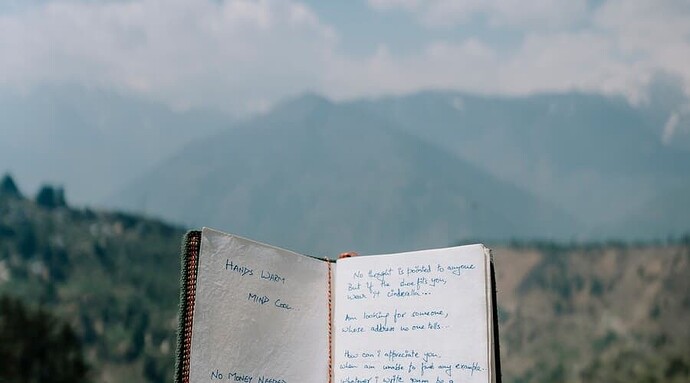 HANDS WARM
MIND COOL
NO MONEY NEEDED
No thought is pointed to anyone
But if the shoe fits you,
wear it cinderella...
Am looking for someone,
whose address no one tells...
How can I appreciate you,
when am unable to find any example
whatever I write
be a